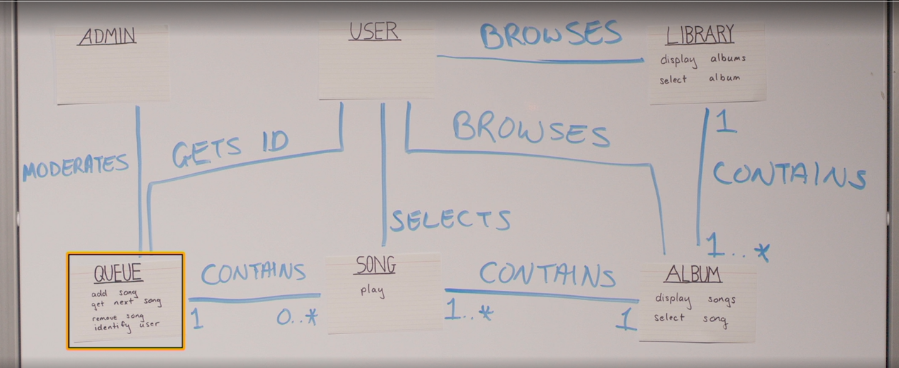 ADMIN
USER
BROWSES
LIBRARY
display albums
select album
MODERATES
GETS ID
BROWSES
1
CONTAINS
SELECTS
1..*
QUEUE
add song
get next song
remove song
identify user
CONTAINS
1
0..*
SONG
play
CONTAINS
1..*
1
ALBUM
display songs
select song